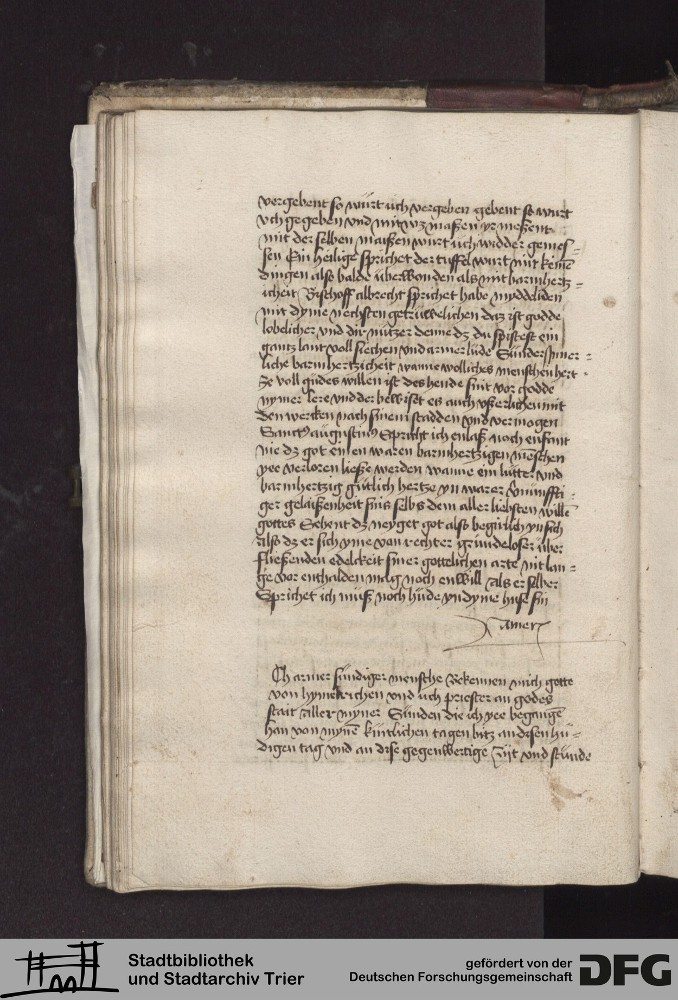 vergebent so würt üch vergeben gebent so wurt
vch gegeben vnd mit wz maßen yr meßent
mit der selben maißen wurt üch widder gemes-
sen Ein heilige sprichet der tuffel wurt mit keinē
dingen also balde überwonden als mit barmhertz-
icheit Bischoff albrecht sprichet habe myddeliden
mit dyme nechsten getrüwelichen daz ist godde
lobelicher vnd dir nützer denne dz du spisest ein
gantz lant voll siechen vnd armer lüde Sünder
liche barmhertzicheit wanne wolliches menschen hert
ze voll gudes willen ist des hende sint vor godde
nymer lere vnd der bewiset es auch vßerlichen mit
den wercken nach sinem stadden vnd vermogen
Sanctus augustinus Spricht ich enlaß noch enfant
nie dz got einen waren barmhertzigen meschen
yee verloren ließe werden wanne ein lutter vnd
barmhertzig gütlich hertze yn warer v̄nünffti-
ger gelaißenheit sins selbs dem aller liebsten willē
gottes Sehent dz neyget got also begirlich yn sich
also dz er sich yme von rechter grundeloser über
fließenden edelckeit siner gottelichen arte nit lan-
ge vor enthalden mag noch enwill Als er selber
Sprichet ich müß noch hüde yn dyme huse sin
Amen
Ch armer sündiger mensche Bekennen mich gotte
von hymelrichen vnd üch priester an godes
stait aller myner Sünden die ich yee begangē
han von mynē kintlichen tagen bitz an disen hü-
digen tag vnd an dise gegenwertige Zijt vnd stunde
Stadtbibliothek
und Stadtarchiv Trier
gefördert von der
Deutschen Forschungsgemeinschaft
DFG